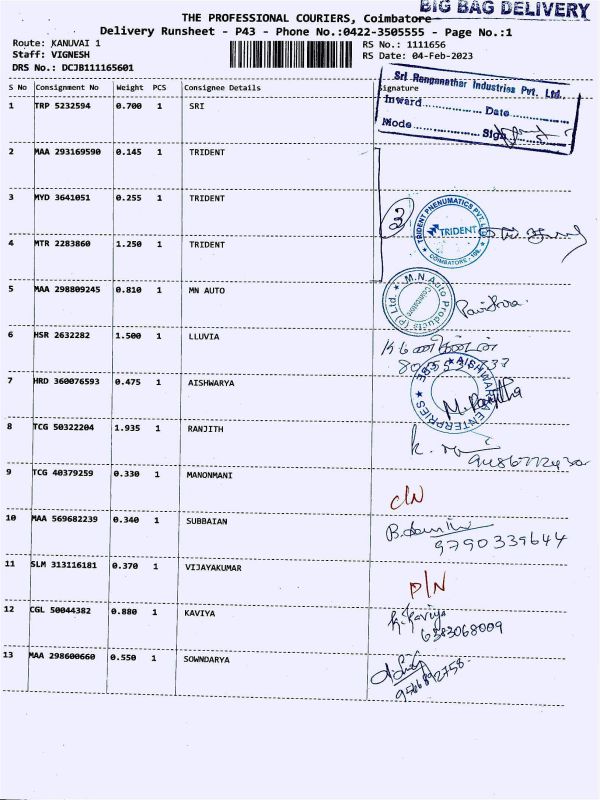 BIG BAG DELIVERY
THE PROFESSIONAL COURIERS, Coimbatore
Delivery Runsheet - P43 - Phone No.:0422-3505555 - Page No.:1
Route: KANUVAI 1
RS No.: 1111656
Staff: VIGNESH
RS Date: 04-Feb-2023
DRS No.: DCJB111165601
S No Consignment No Weight PCS Consignee Details Signature
Sri Ranganathar Industries Pvt. Ltd.,
Inward Date
Mode Sign
1 TRP 5232594 0.700 1 SRI
2 MAA 293169590 0.145 1 TRIDENT
3 MYD 3641051 0.255 1 TRIDENT
3
TRIDENT PNEUMATICS PVT. LTD
TRIDENT
COIMBATORE
4 MTR 2283860 1.250 1 TRIDENT
5 MAA 298809245 0.810 1 MN AUTO
M.N. Auto Products (P) Ltd.
Coimbatore
Pavithra
6 HSR 2632282 1.500 1 LLUVIA
7 HRD 360076593 0.475 1 AISHWARYA
AISHWARYA ENTERPRIES
8 TCG 50322204 1.935 1 RANJITH
9 TCG 40379259 0.330 1 MANONMANI
C/N
10 MAA 569682239 0.340 1 SUBBAIAN
9790339644
11 SLM 313116181 0.370 1 VIJAYAKUMAR
P/N
12 CGL 50044382 0.880 1 KAVIYA
K. Kaviya
6383068009
13 MAA 298600660 0.550 1 SOWNDARYA
9566892758